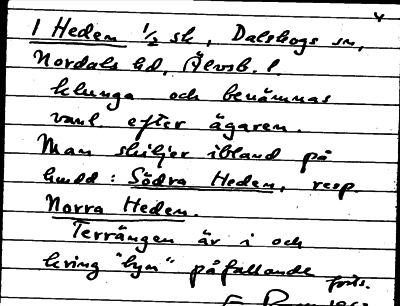 1 Heden 1/2 sk, Dalskogs sn,
Nordals hd, Älvsb. l.
klunga och benämnas
vanl. efter ägaren.
Man skiljer ibland på
huvud: Södra Heden, resp.
Norra Heden.
Terrängen är i och
kring "byn" påfallande
forts.